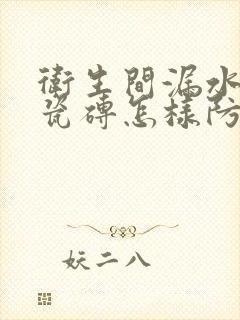 衛生間漏水
瓷磚怎樣防
妖二八